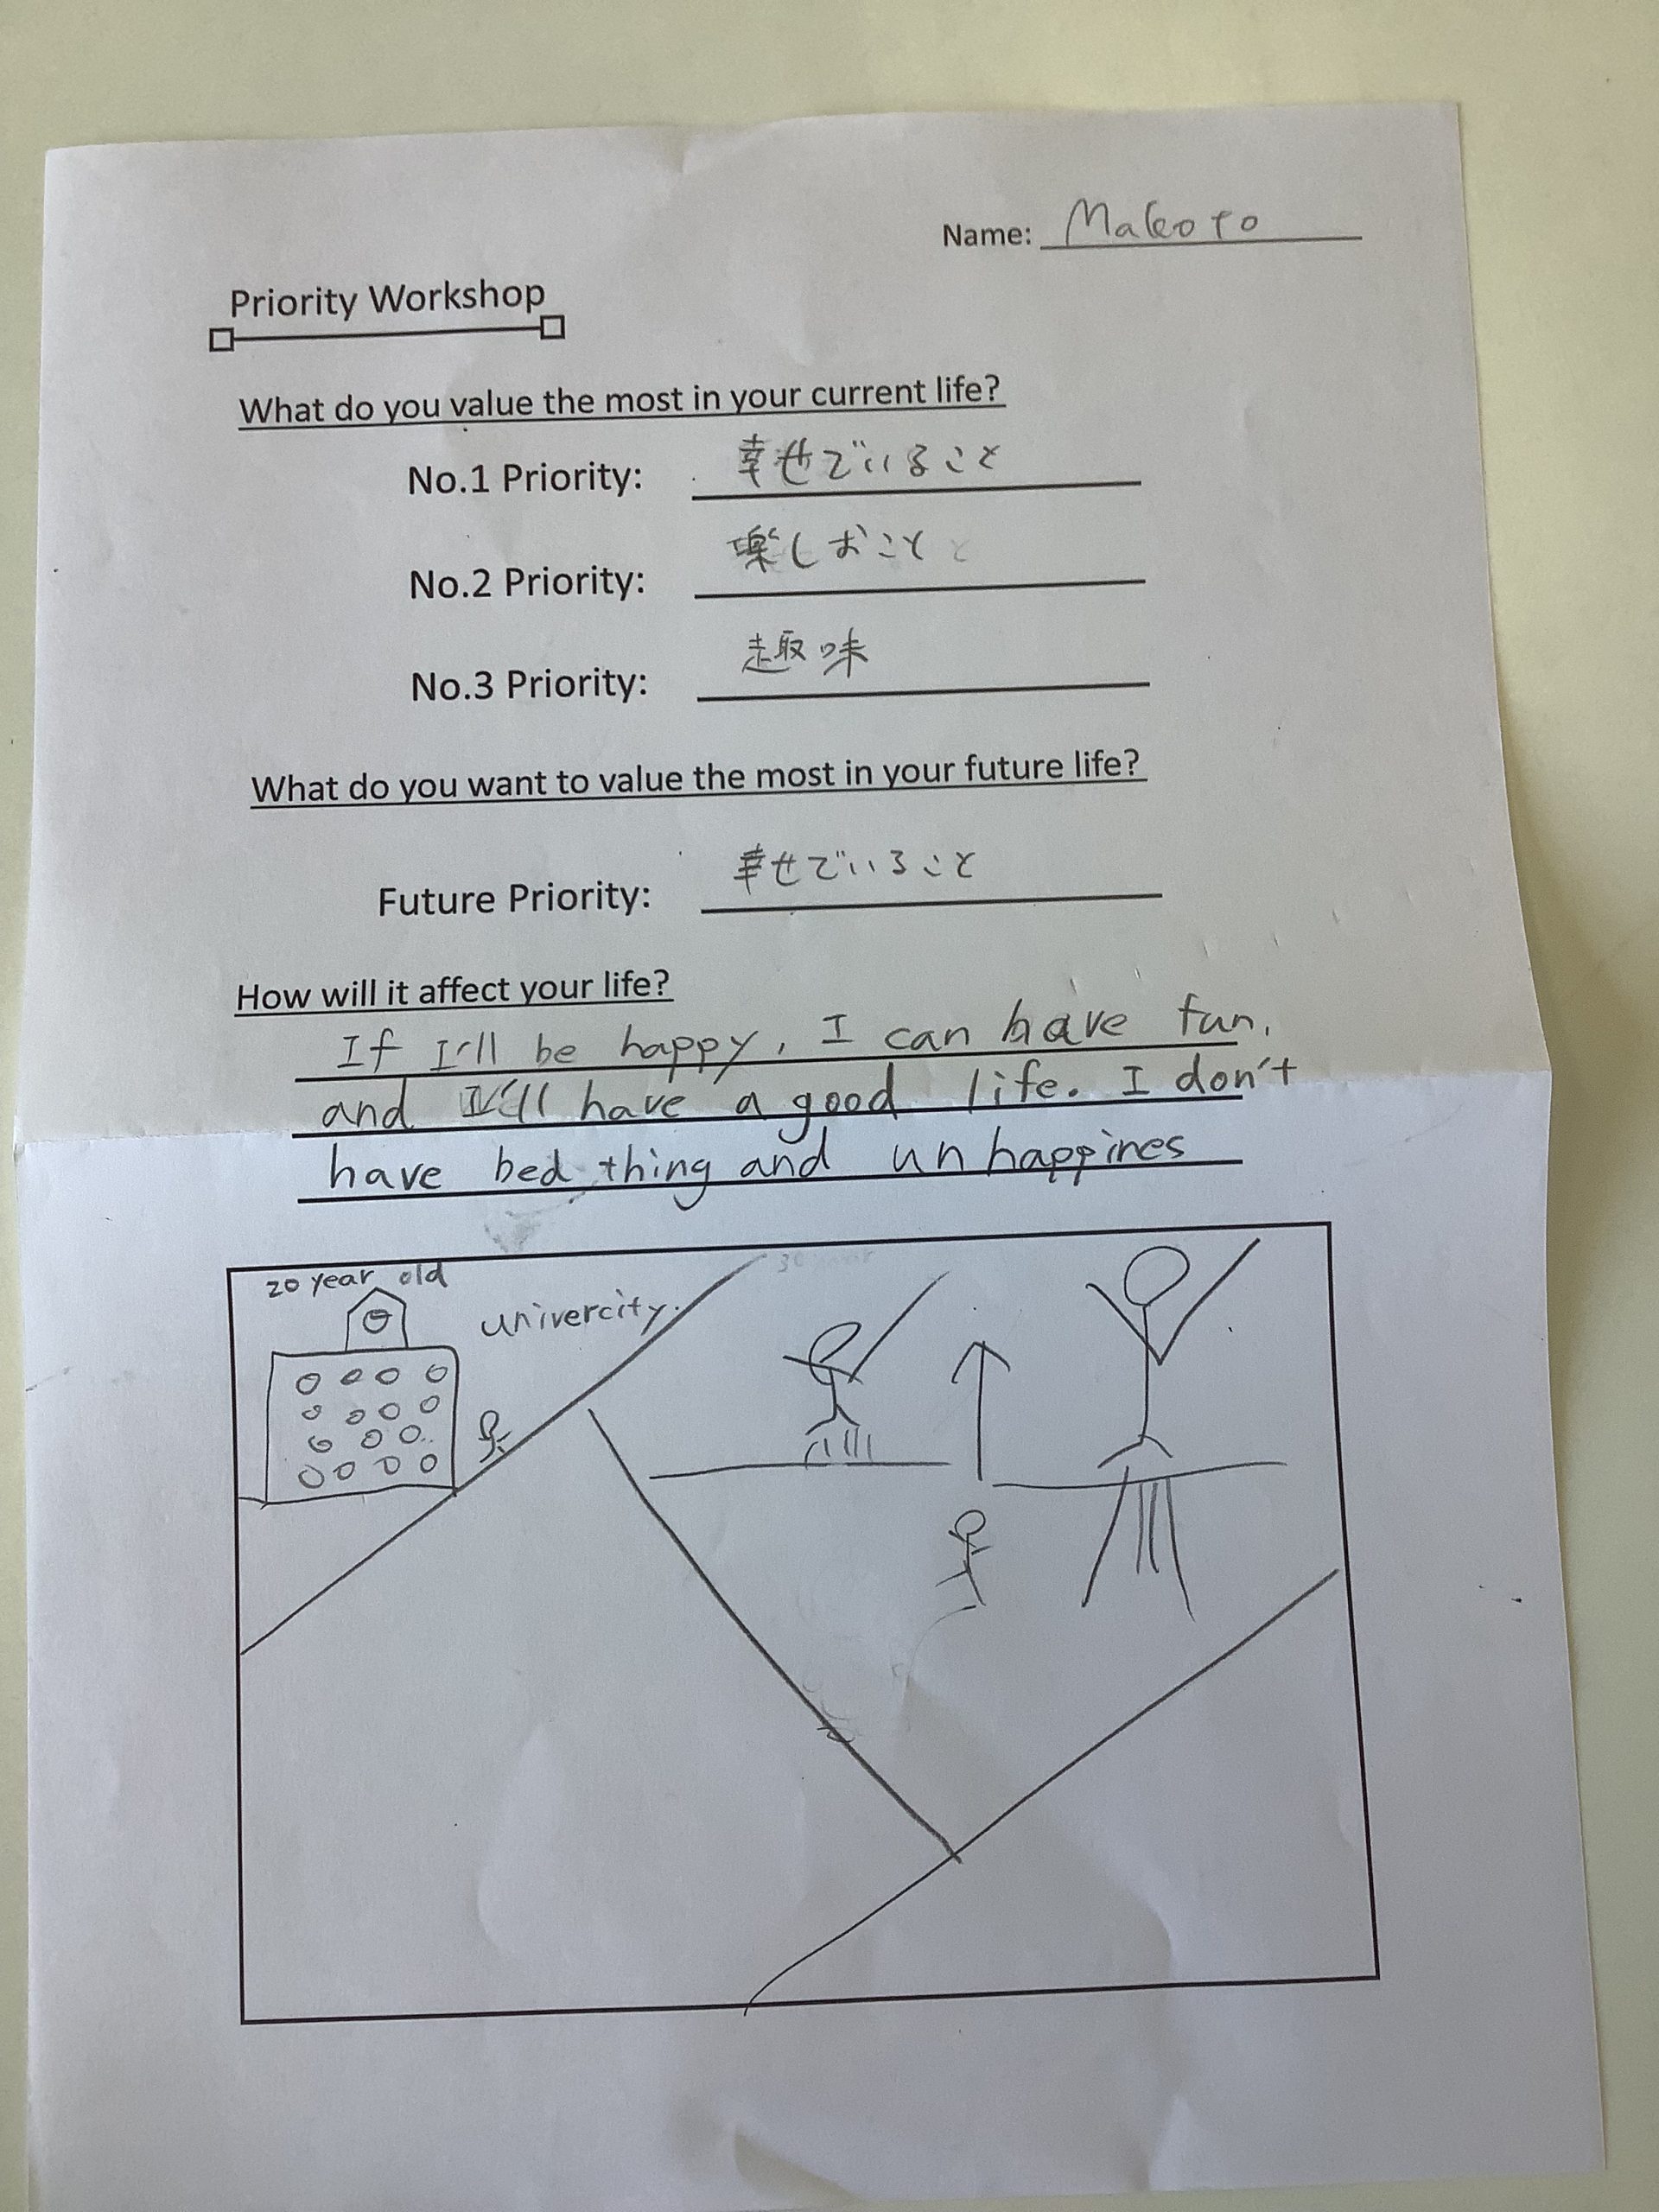 Name: Makoto
Priority Workshop
What do you value the most in your current life?
No.1 Priority: 幸せでいること
No.2 Priority: 楽しおこと
No.3 Priority: 趣味
What do you want to value the most in your future life?
Future Priority: 幸せでいること
How will it affect your life?
If I'll be happy, I can have fun.
and I'll have a good life. I don't
have bed thing and unhappines
20 year old
univercity.